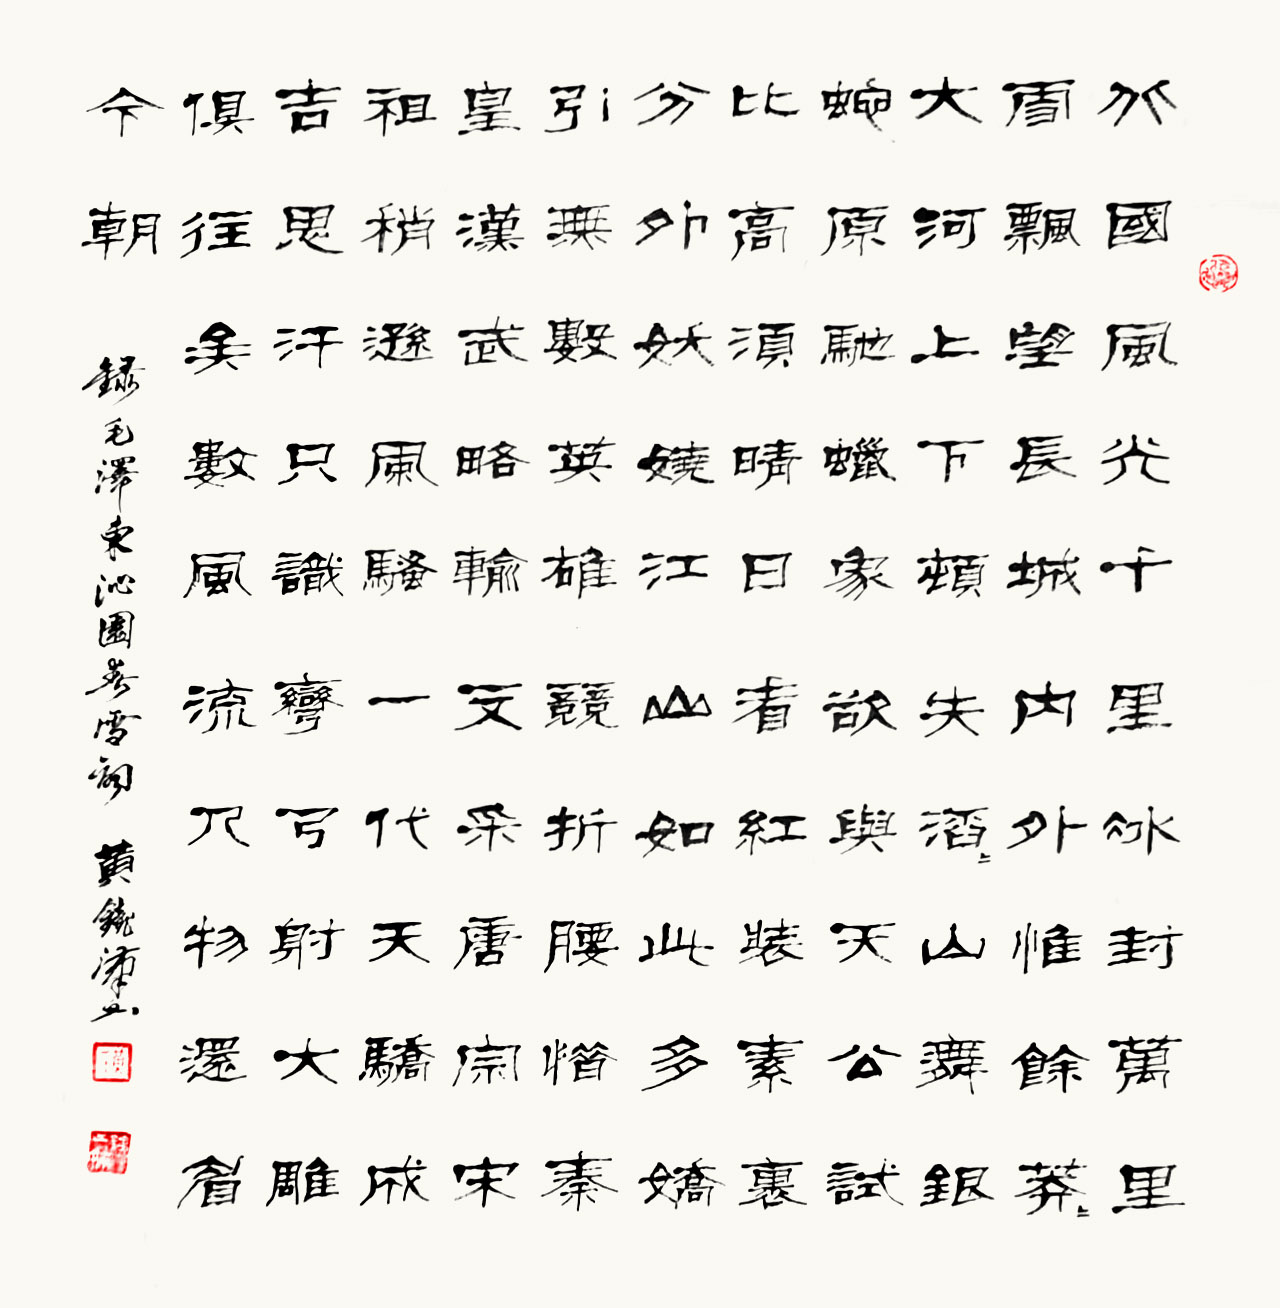 北國風光千里冰封萬里
雪飄望長城内外惟餘莽〻
大河上下頓失滔〻山舞銀
蛇原馳蠟象欲與天公試
比高須晴日看紅裝素裹
分外妖嬈江山如此多嬌
引無數英雄競折腰惜秦
皇漢武略輸文采唐宗宋
祖稍遜風騷一代天驕成
吉思汗只識彎弓射大雕
俱往矣數風流人物還看
今朝
録毛澤東沁園春雪詞 黄